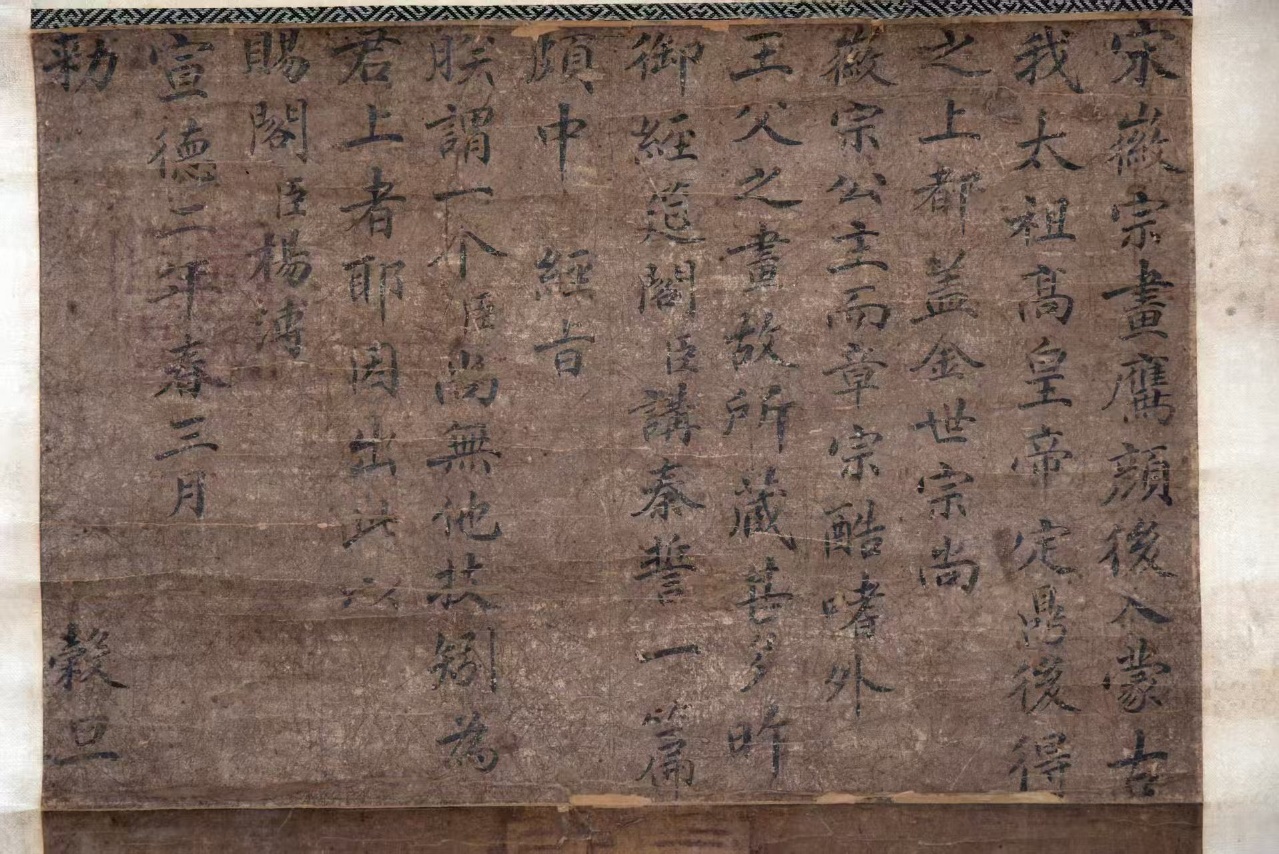 宋徽宗畫鷹顔後入蒙古
我太祖高皇帝定鼎後得
之上都盖金世宗尚
徽宗公主而章宗酷嗜外
王父之畫故所蔵甚多昨
御經筵閣臣講秦誓一篇
頗中經旨
朕謂一个臣尚無他技矧為
君上者耶因出此以
賜閣臣楊溥
宣德二年春三月
勑 穀旦